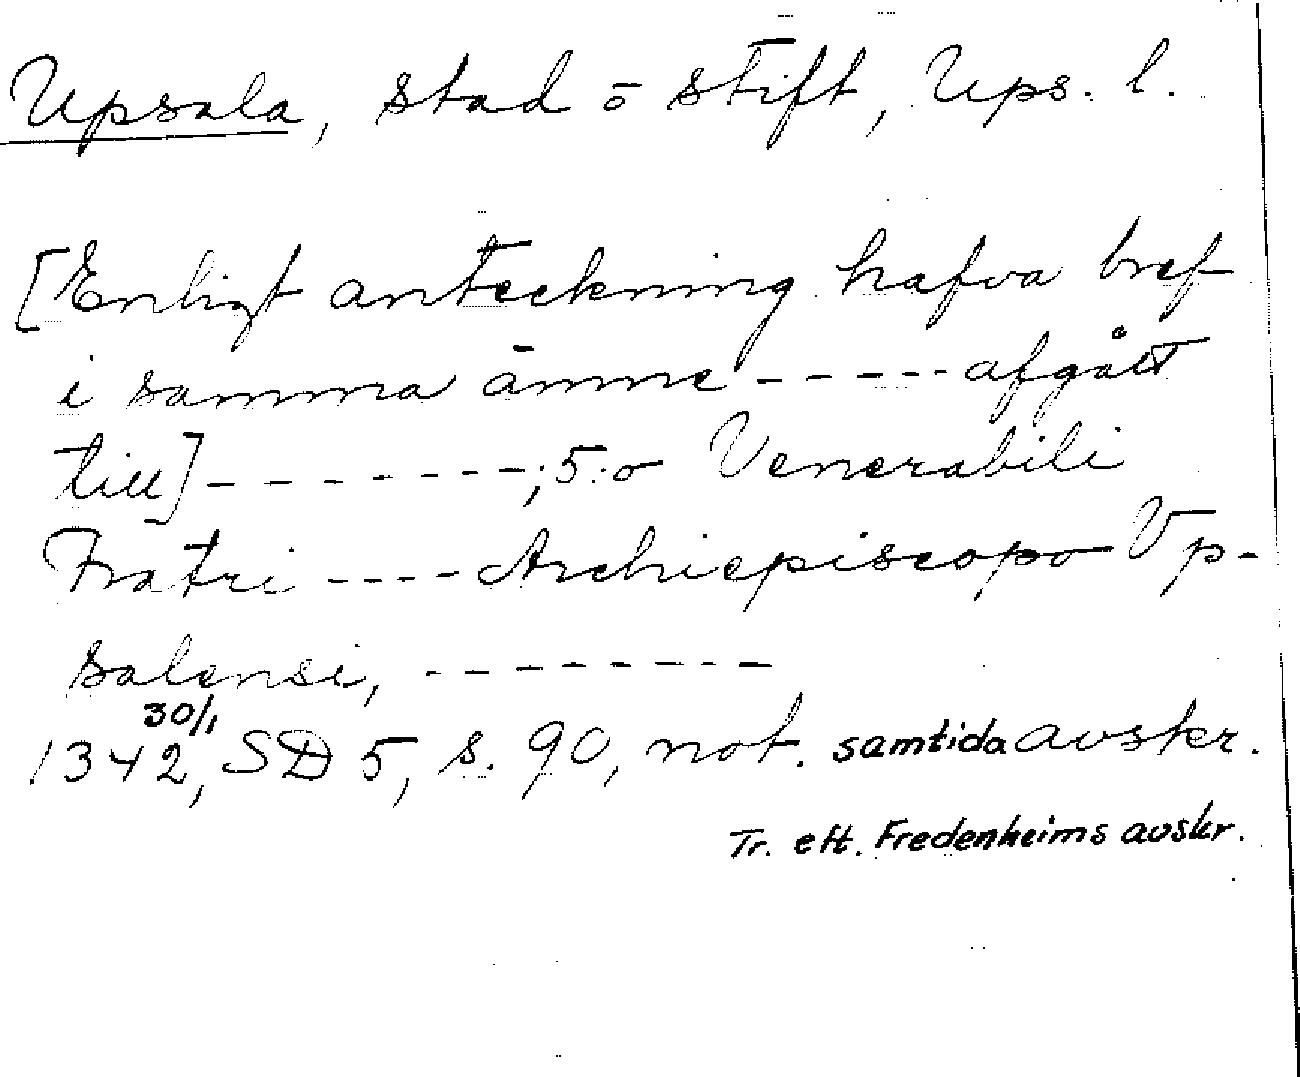 Upsala, stad ō stift, Ups. l.
[Enligt anteckning hafva bref
i samma ämne ----- afgått
till] --------; 5:o Venerabili
Fratri ---- Archiepiscopo Vp-
salensi, ---------
30/1
1342, SD 5, s. 90, not. samtida avskr.
Tr. eft. Fredenheims avskr.